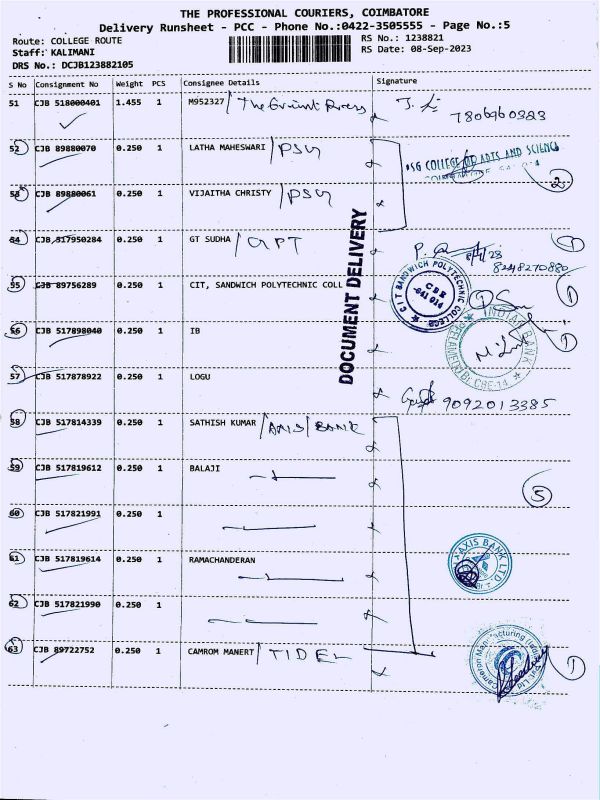 THE PROFESSIONAL COURIERS, COIMBATORE
Delivery Runsheet - PCC - Phone No.:0422-3505555 - Page No.:5
Route: COLLEGE ROUTE
RS No.: 1238821
Staff: KALIMANI
RS Date: 08-Sep-2023
DRS No.: DCJB123882105
S No Consignment No Weight PCS Consignee Details Signature
51 CJB 518000401 1.455 1 M952327 / 7806960323
52 CJB 89880070 0.250 1 LATHA MAHESWARI / PSG
PSG COLLEGE OF ARTS AND SCIENCE
2
53 CJB 89880061 0.250 1 VIJAITHA CHRISTY / PSG
DOCUMENT DELIVERY
54 CJB 517950284 0.250 1 GT SUDHA / 1
8248270880
55 CJB 89756289 0.250 1 CIT, SANDWICH POLYTECHNIC COLL 1
CIT SANDWICH POLYTECHNIC COLLEGE
CBE
641 014
56 CJB 517898040 0.250 1 IB 1
INDIAN BANK
CBE-14
57 CJB 517878922 0.250 1 LOGU 9092013385
58 CJB 517814339 0.250 1 SATHISH KUMAR / AXIS BANK
59 CJB 517819612 0.250 1 BALAJI
5
60 CJB 517821991 0.250 1
61 CJB 517819614 0.250 1 RAMACHANDERAN
AXIS BANK LTD
62 CJB 517821990 0.250 1
63 CJB 89722752 0.250 1 CAMROM MANERT / TIDEL 1